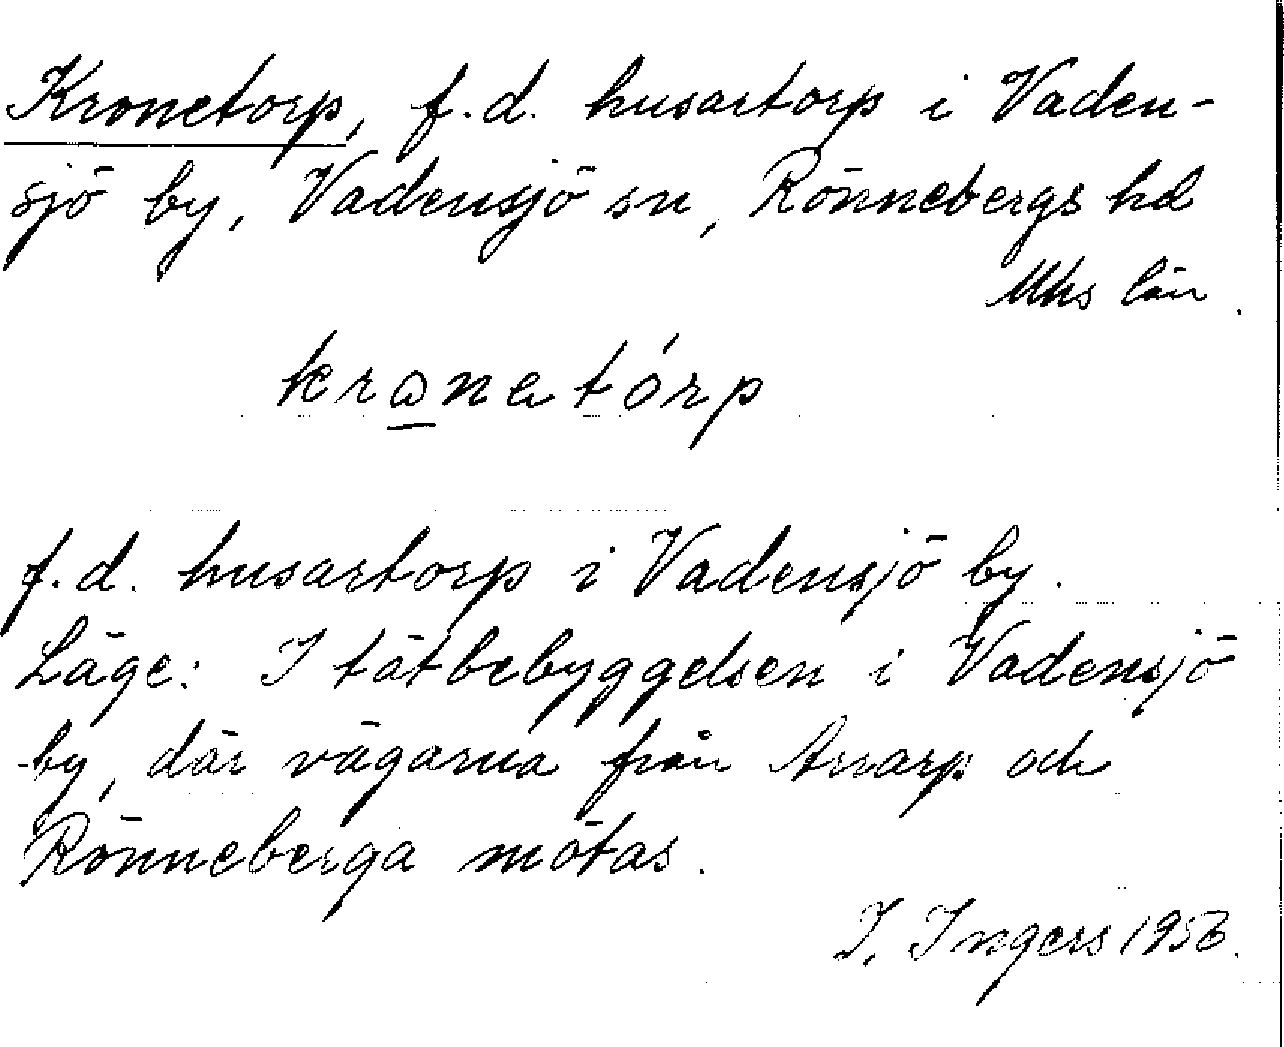 Kronetorp, f.d. husartorp i Vaden-
sjö by, Vadensjö sn, Rönnebergs hd
Mhs län.
kronetórp
f.d. husartorp i Vadensjö by.
Läge: I tätbebyggelsen i Vadensjö
by, där vägarna från Annarp och
Rönneberga mötas.
I. Ingers